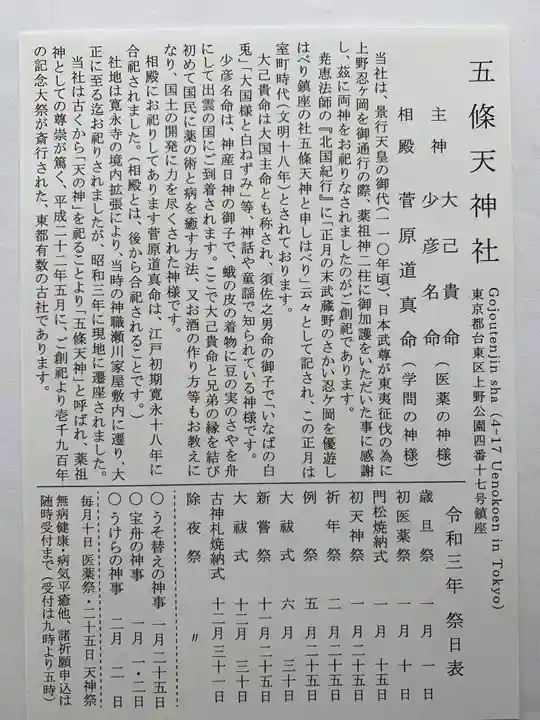 五條天神社
Gojoutenjin sha (4-17 Uenokoen in Tokyo)
東京都台東区上野公園四番十七号鎮座
主神 大己貴命
少彦名命 (医薬の神様)
相殿 菅原道真命 (学問の神様)
当社は、景行天皇の御代(一一〇年頃)、日本武尊が東夷征伐の為に
上野忍ケ岡を御通行の際、薬祖神二柱に御加護をいただいた事に感謝
し、茲に両神をお祀りなされましたのがご創祀であります。
尭恵法師の『北国紀行』に「正月の末武蔵野のさかい忍ケ岡を優遊し
はべり鎮座の社五條天神と申しはべり」云々として記され、この正月は
室町時代(文明十八年)とされております。
大己貴命は大国主命とも称され、須佐之男命の御子で「いなばの白
兎」「大国様と白ねずみ」等、神話や童謡で知られている神様です。
少彦名命は、神産日神の御子で、蛾の皮の着物に豆の実のさやを舟
にして出雲の国にご到着されます。ここで大己貴命と兄弟の縁を結び
初めて国民に薬の術と病を癒す方法、又お酒の作り方等もお教えに
なり、国土の開発に力を尽くされた神様です。
相殿にお祀りしてあります菅原道真命は、江戸初期寛永十八年に
合祀されました。(相殿とは、後から合祀されることです。)
社地は寛永寺の境内拡張により、当時の神職瀬川家屋敷内に遷り、大
正に至る迄お祀りされましたが、昭和三年に現地に遷座されました。
当社は古くから「天の神」を祀ることより「五條天神」と呼ばれ、薬祖
神としての尊崇が篤く、平成二十二年五月に、ご創祀より壱千九百年
の記念大祭が斎行された、東都有数の古社であります。
令和三年 祭日表
歳旦祭 一月一日
初医薬祭 一月十日
門松焼納式 一月十五日
初天神祭 一月二十五日
祈年祭 二月二十五日
例祭 五月二十五日
大祓式 六月三十日
新嘗祭 十一月二十五日
大祓式 十二月三十日
古神札焼納式 十二月三十一日
除夜祭 〃
〇うそ替えの神事 一月二十五日
〇宝舟の神事 一月一・二日
〇うけらの神事 二月二日
毎月十日 医薬祭・二十五日 天神祭
無病健康・病気平癒他、諸祈願申込は
随時受付まで(受付は九時より五時)